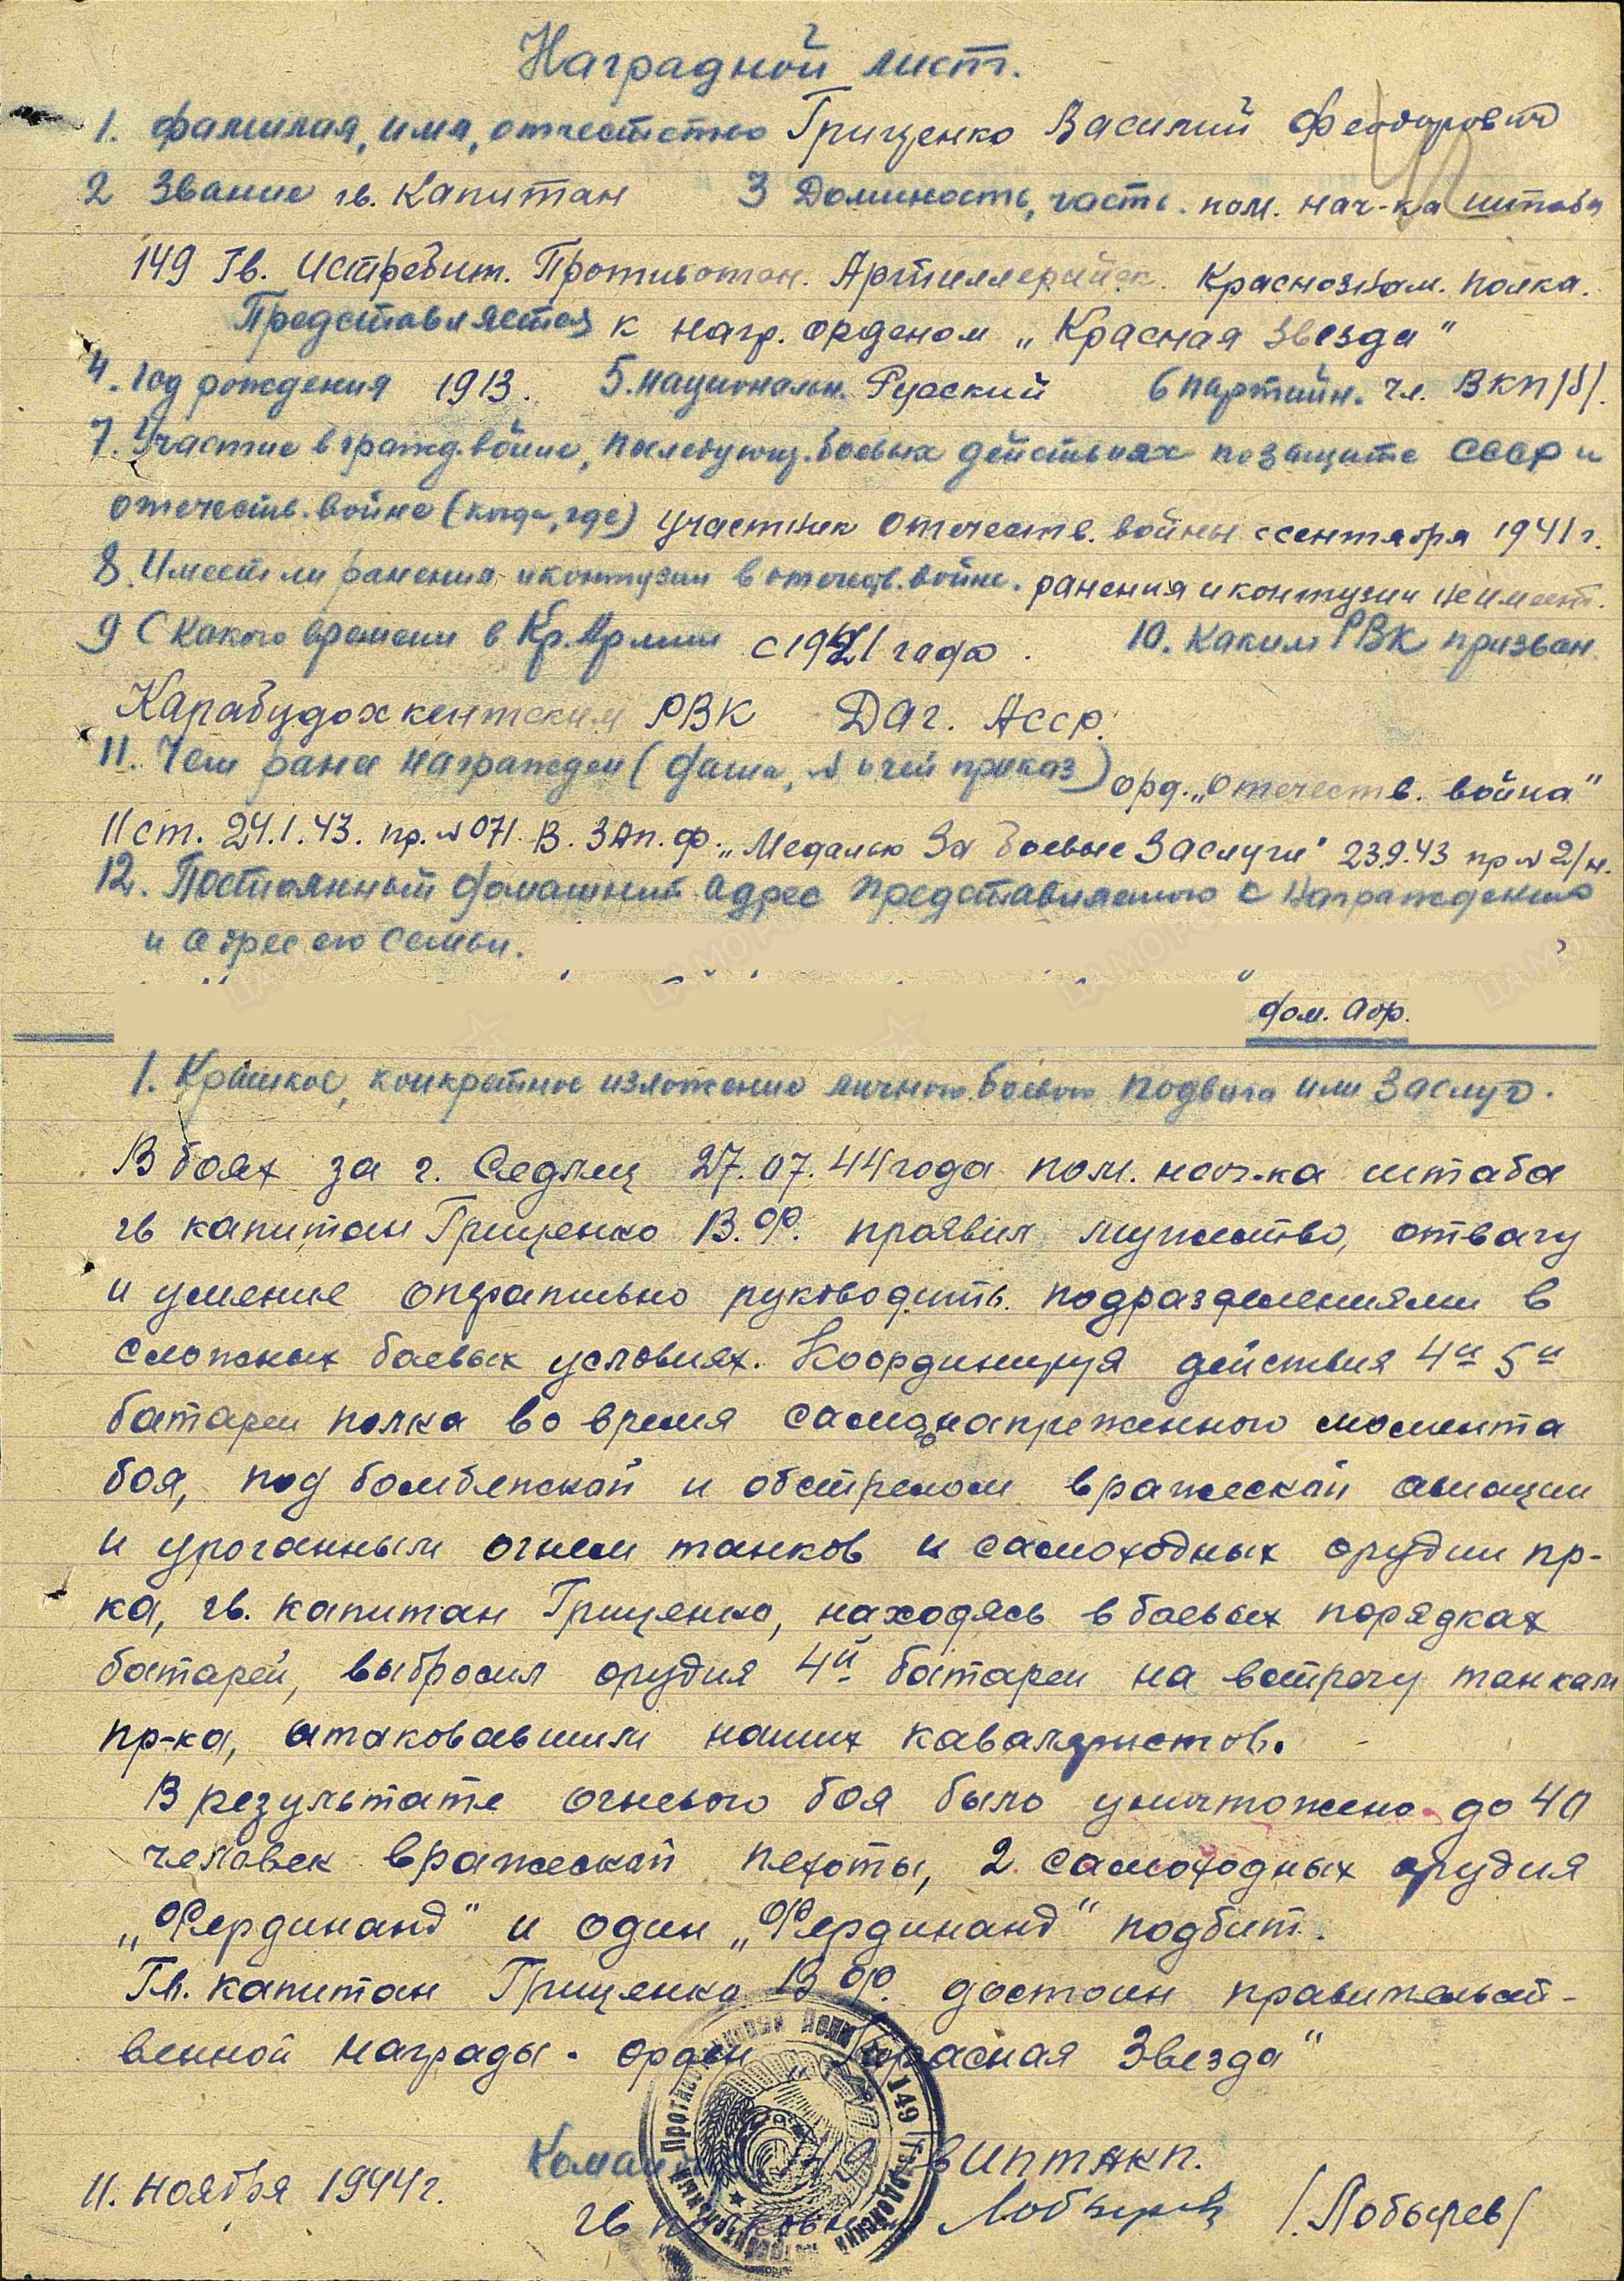 Наградной лист.
1. фамилия, имя, отчество Грищенко Василий Феодорович
2 Звание гв. Капитан 3 Должность, часть. пом. нач-ка штаба
149 Гв. Истребит. Противотан. Артиллерийск. Краснознам. полка.
Представляется к нагр. орденом „Красная Звезда"
4. год рождения 1913. 5. национальн. Русский 6 партийн. чл. ВКП/б/.
7. Участие в гражд. войне, последующ. боевых действиях по защите СССР и
отечеств. войне (когда, где) участник Отечеств. войны с сентября 1941 г.
8. Имеет ли ранения и контузии в отечеств. войне. ранения и контузии не имеет.
9 С какого времени в Кр. Армии с 1941 года. 10. Каким РВК призван
Карабудахкентским РВК Даг. Асср.
11. Чем ранее награжден (дата, № и чей приказ) орд. „Отечеств. война"
II ст. 24.1.43. пр. № 071. В. ЗАп. ф. „Медалью За боевые Заслуги" 23.9.43 пр № 2/н.
12. Постоянный домашний адрес представляемого к награждению
и адрес его семьи.
дом. адр.
1. Краткое, конкретное изложение личного боевого подвига или заслуг.
В боях за г. Седлец 27.07.44 года пом. нач-ка штаба
гв капитан Грищенко В.Ф. проявил мужество, отвагу
и умение оперативно руководить подразделениями в
сложных боевых условиях. Координируя действия 4й 5й
батареи полка во время самого напреженного момента
боя, под бомбежкой и обстрелом вражеской авиации
и ураганным огнем танков и самоходных орудии пр-
ка, гв. капитан Грищенко, находясь в боевых порядках
батарей, выбросил орудия 4й батареи на встречу танкам
пр-ка, атаковавшим наших кавалеристов.
В результате огневого боя было уничтожено до 40
человек вражеской пехоты, 2 самоходных орудия
„Фердинанд" и один „Фердинанд" подбит.
Гв. капитан Грищенко В Ф. достоин правительст-
венной награды - орден „Красная Звезда"
Противотанковый Полк 149 Гвардейский
149 гв ИПТАКП.
11. ноября 1944 г.
гв полковник Лобырев /Лобырев/